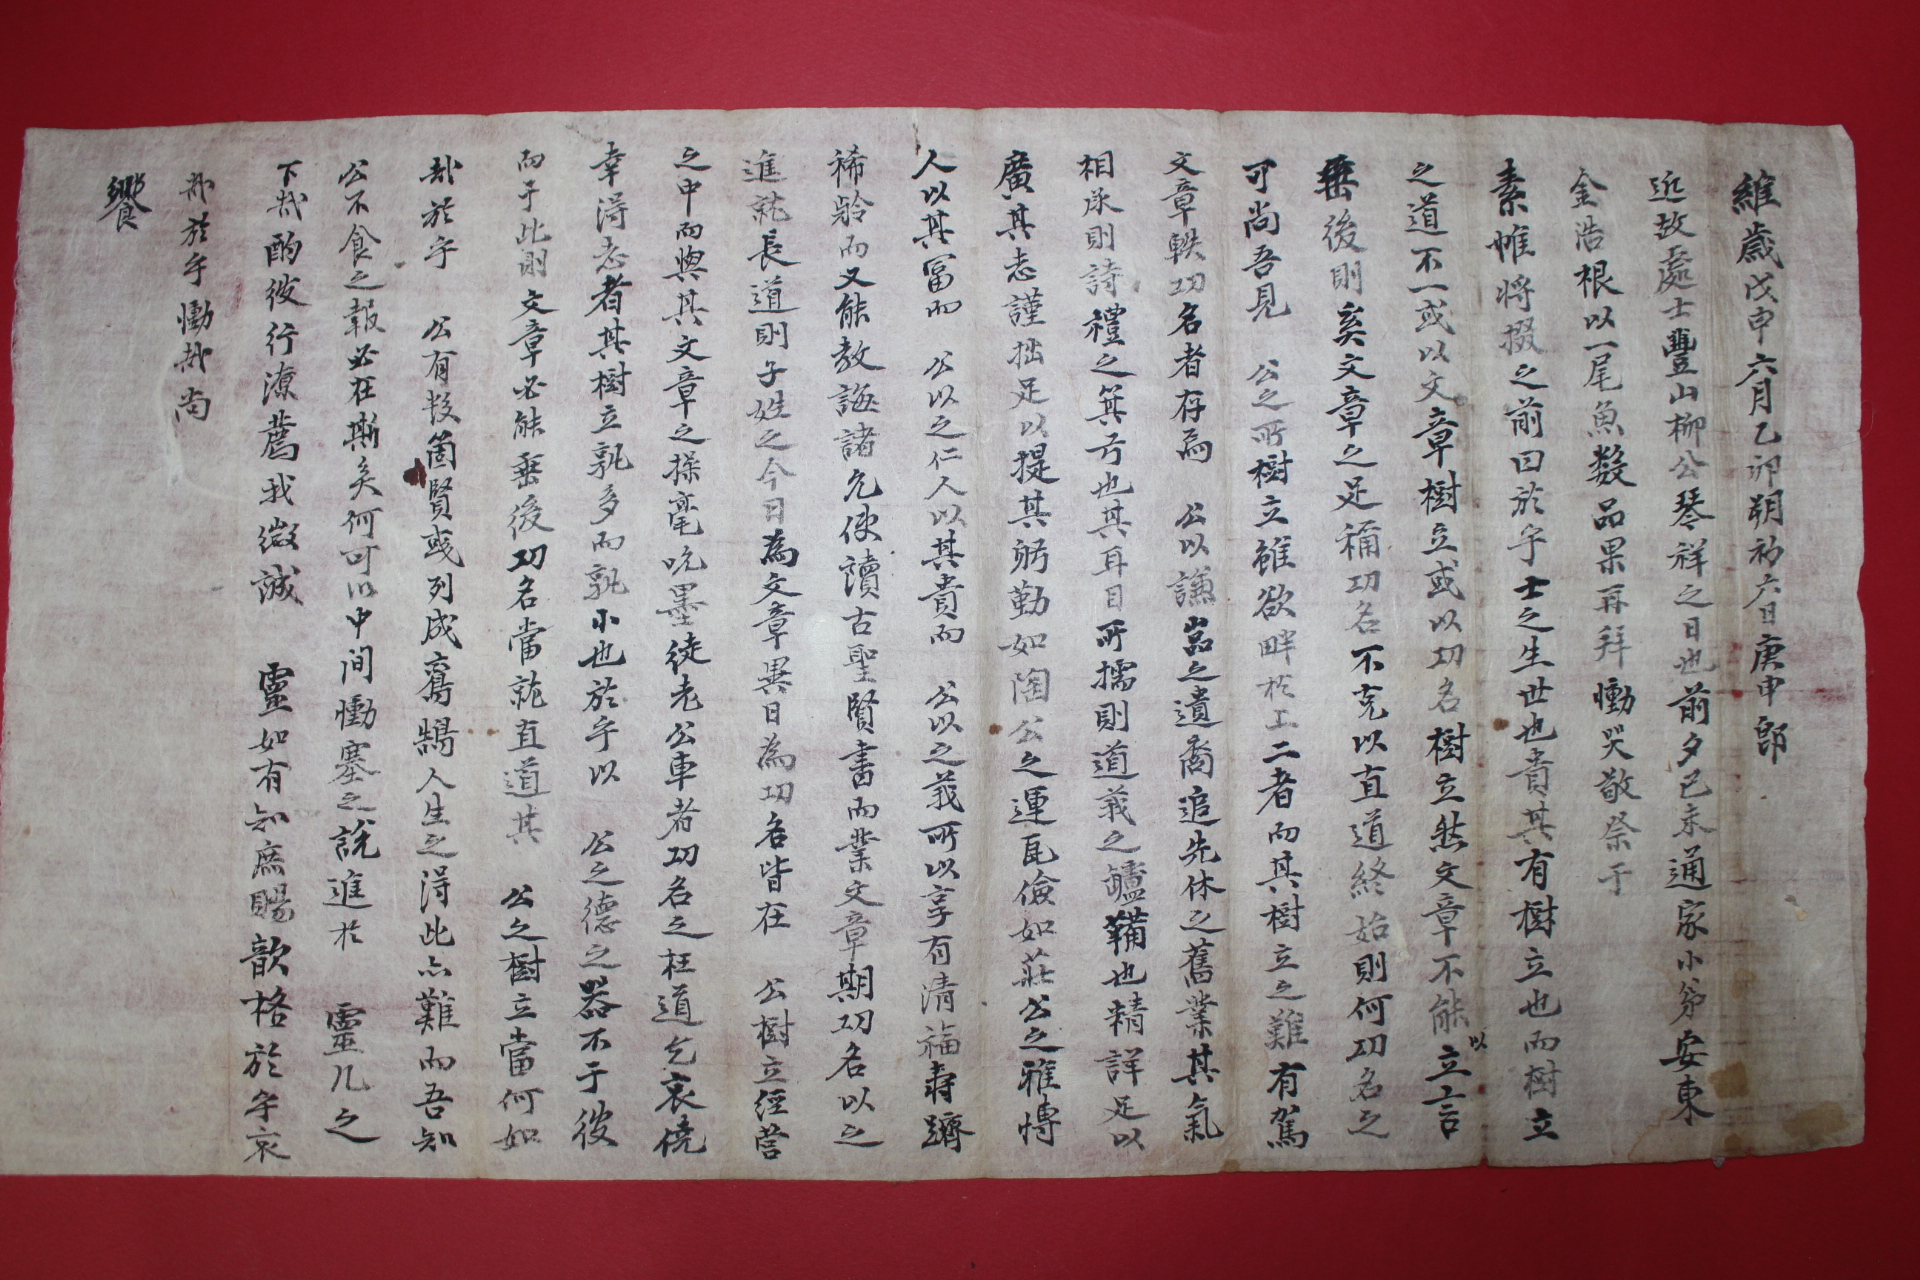 維歲戊申六月乙卯朔初六日庚申郎
近故處士豐山柳公琴祥之日也前夕己未通家小弟安東
金浩根以一尾魚数品果再拜慟哭敬祭于
素帷將掇之前曰於乎士之生世也貴其有樹立也而樹立
之道不一或以文章樹立或以功名樹立然文章不能以立言
垂後則奚文章之足稱功名不克以直道終始則何功名之
可尚吾見 公之所樹立雖欲畔於二者而其樹立之難有駕
文章軼功名者存焉 公以謙嵒之遺裔追先休之舊業其氣
相承則詩禮之箕弓也其耳目所擩則道義之鑪鞴也精詳足以
廣其志謹拙足以提其躬勤如陶公之運瓦儉如莊公之雅愽
人以其富而 公以之仁人以其貴而 公以之義所以享有清福壽躋
稀齡而又能教誨諸允使讀古聖賢書而業文章期功名以之
進就長道則子姓之今日為文章異日為功名皆在 公樹立經營
之中而與其文章之操毫吮墨徒老公車者功名之枉道乞哀僥
幸得志者其樹立孰多而孰小也於乎以 公之德之器不于彼
而于此則文章必能垂後功名當就直道其 公之樹立當何如
哉於乎 公有数箇賢彧列成鸞鵠人生之得此亦難而吾知
公不食之報必在斯矣何可以中間慟塞之説進於 靈几之
下哉酌彼行潦薦我微誠 靈如有知庶賜歆格於乎哀
哉於乎慟哉尚
饗